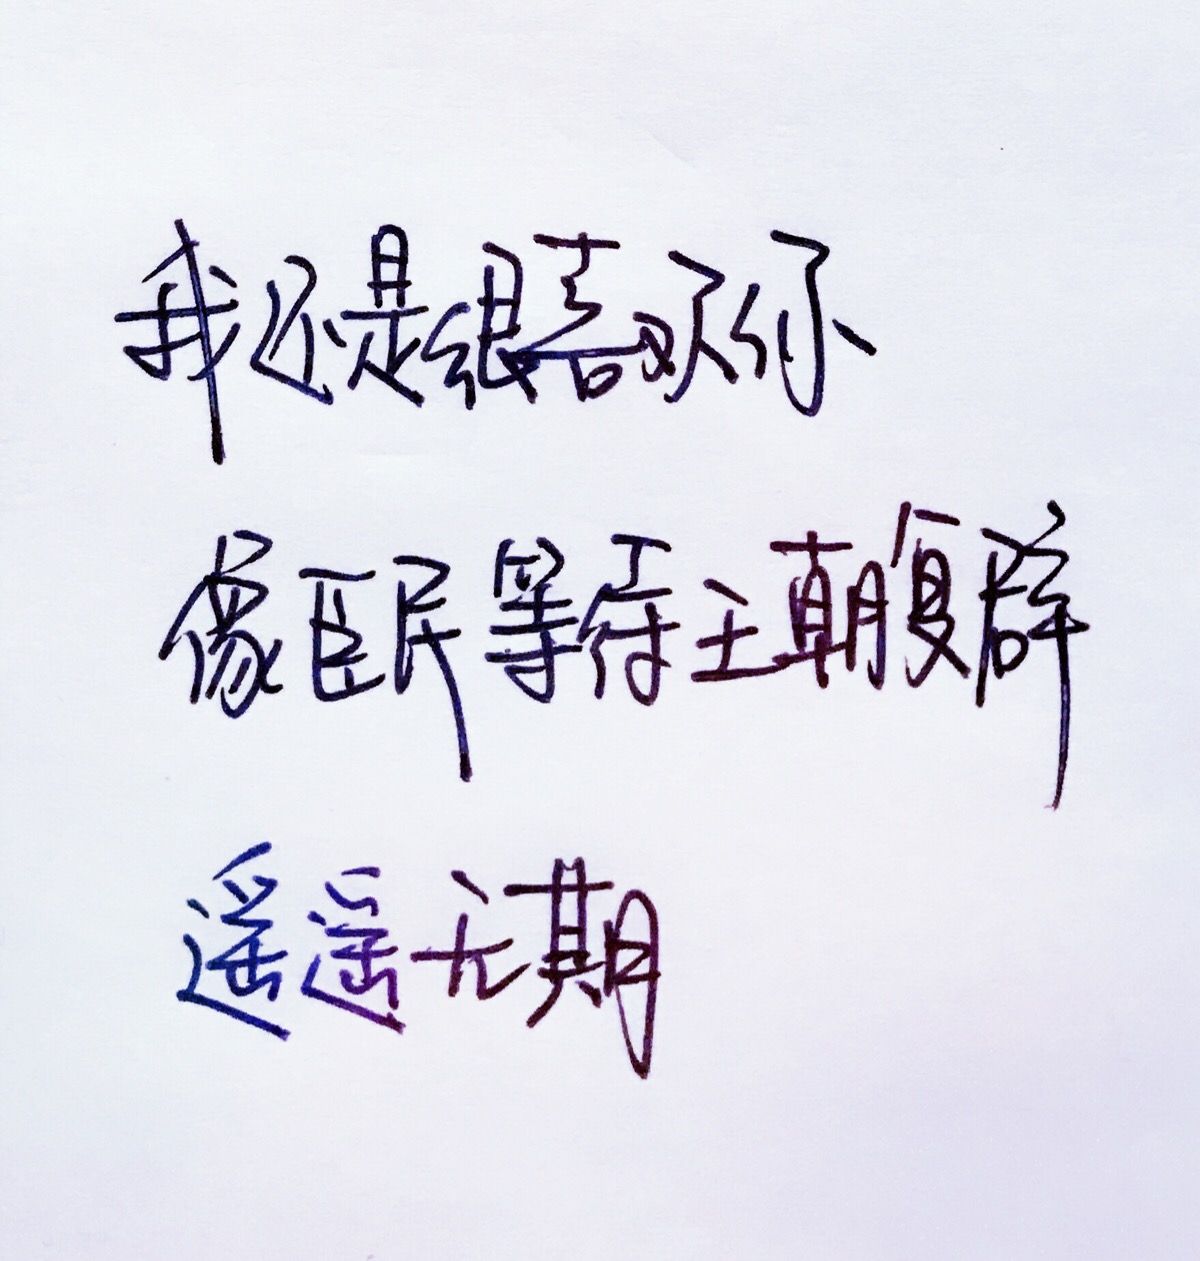 我还是很喜欢你
像臣民等待王朝复辟
遥遥无期